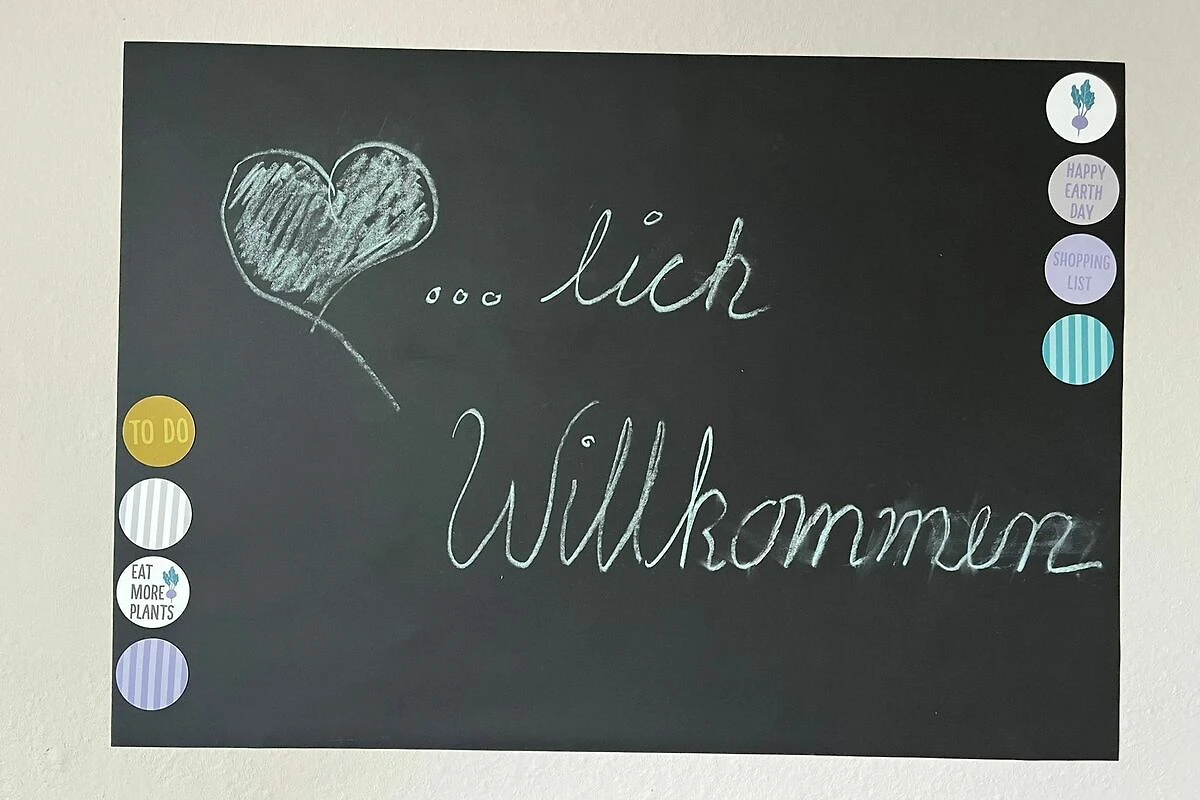 ... lich
Willkommen
TO DO
EAT
MORE
PLANTS
HAPPY
EARTH
DAY
SHOPPING
LIST